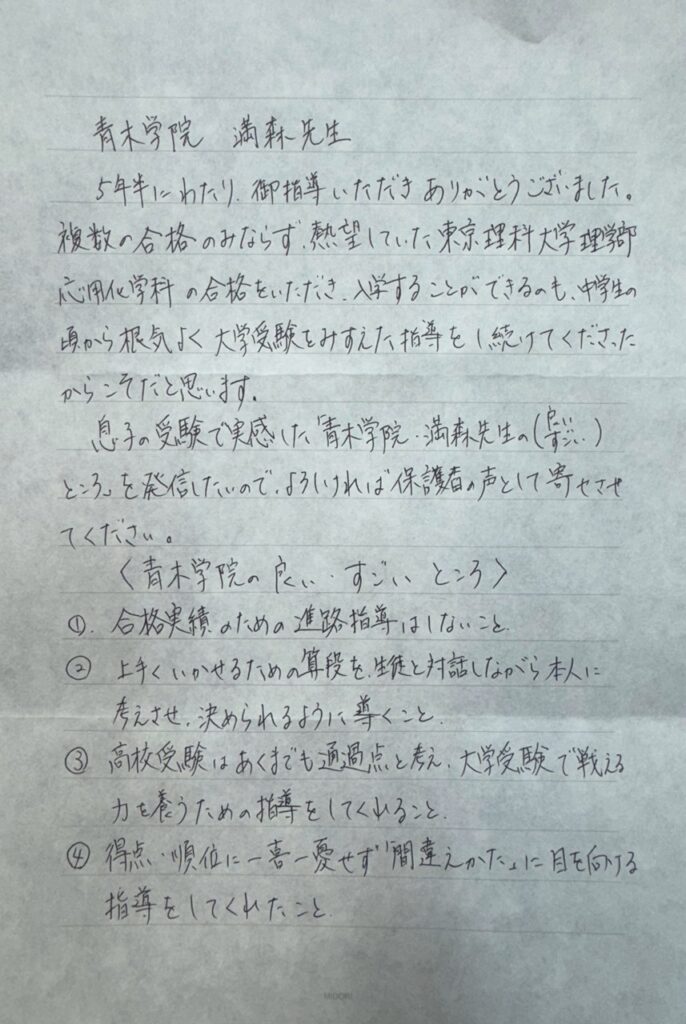 青木学院 満森先生
5年半にわたり、御指導いただき ありがとうございました。
複数の合格のみならず、熱望していた東京理科大学理学部
応用化学科の合格をいただき、入学することができるのも、中学生の
頃から根気よく大学受験をみすえた指導をし続けてくださった
からこそだと思います。
息子の受験で実感した「青木学院・満森先生の(良い・すごい)
ところ」を発信したいので、よろしければ保護者の声として寄せさせ
てください。
〈青木学院の良い・すごい ところ〉
①. 合格実績のための進路指導はしないこと
② 上手くいかせるための算段を、生徒と対話しながら本人に
考えさせ、決められるように導くこと
③ 高校受験はあくまでも通過点と考え、大学受験で戦える
力を養うための指導をしてくれること
④ 得点・順位に一喜一憂せず「間違えかた」に目を向ける
指導をしてくれたこと
MIDORI